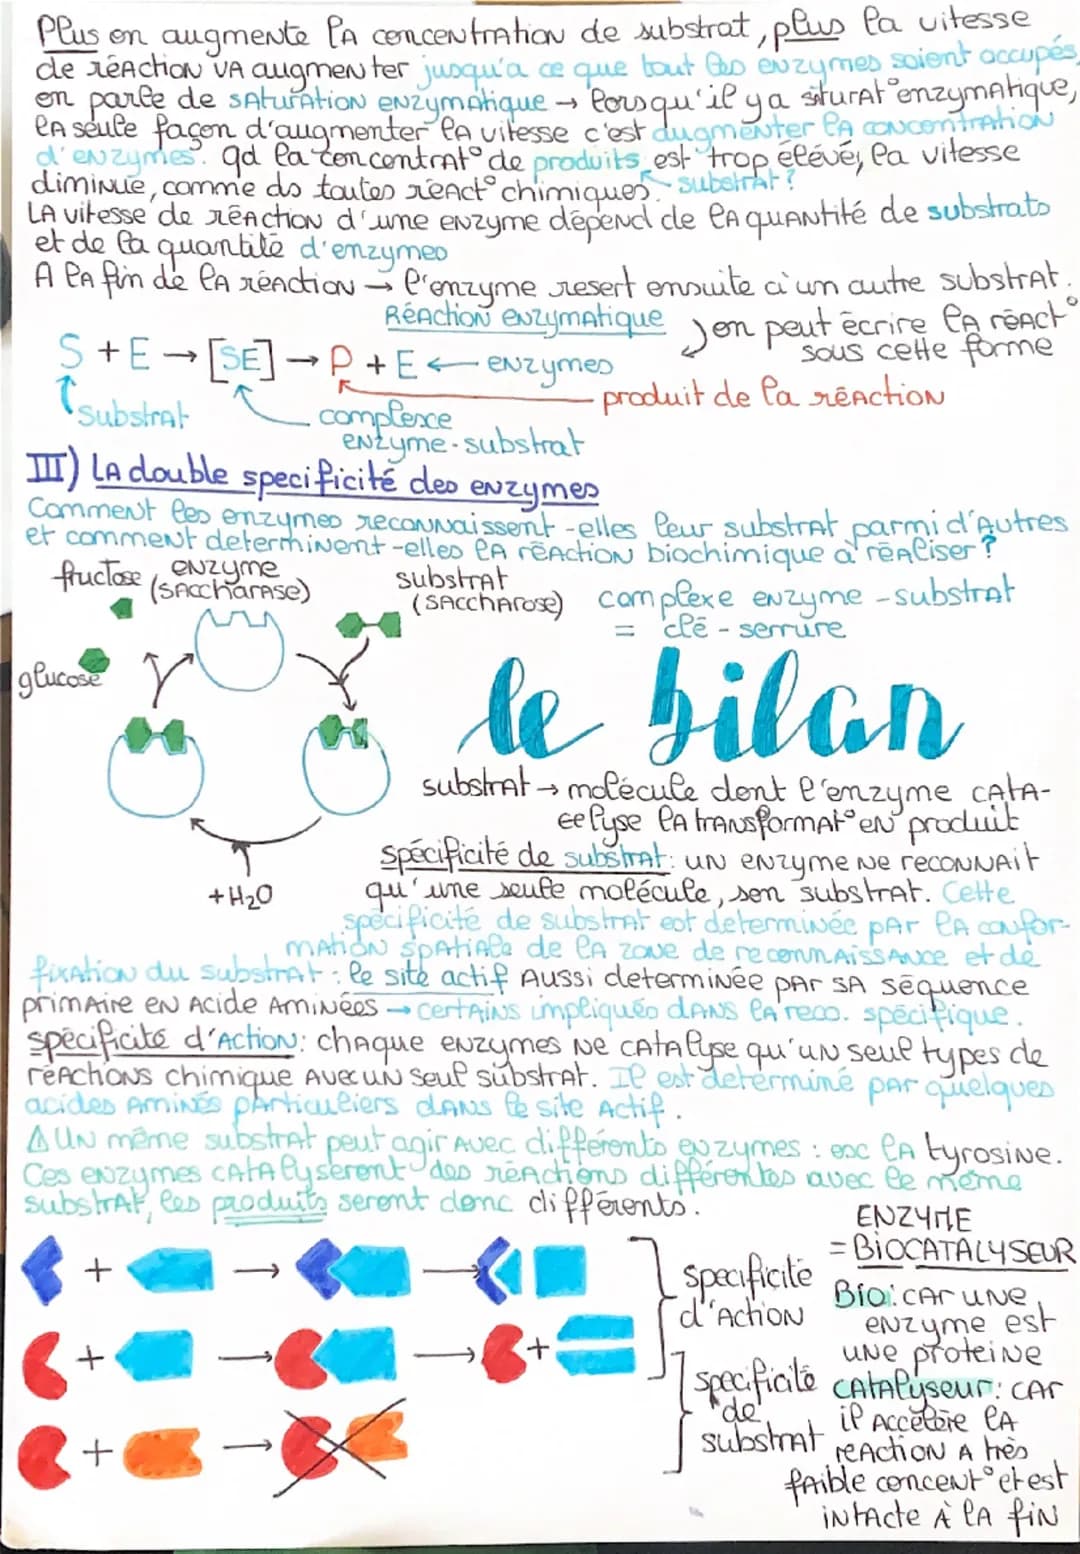 Plus on augmente la concentration de substrat, plus la vitesse
de réaction va augmenter jusqu'a ce que tout les enzymes soient occupés,
on parle de saturation enzymatique → lorsqu'il y a siturat° enzymatique,
la seule façon d'augmenter la vitesse c'est augmenter la concentration
d'enzymes. qd la concentrat° de produits est trop élévé, la vitesse
diminue, comme ds toutes réact° chimiques. substrat?
La vitesse de réaction d'une enzyme dépend de la quantité de substrats
et de la quantité d'enzymes
A la fin de la réaction → l'enzyme resert ensuite à un autre substrat.
Réaction enzymatique
on peut écrire la réact°
sous cette forme
S + E → [SE] → P + E ← enzymes
produit de la réaction
substrat
complexe
enzyme-substrat
III) La double specificité des enzymes
Comment les enzymes reconnaissent-elles leur substrat parmi d'autres
et comment determinent-elles la réaction biochimique à réaliser?
fructose
enzyme
(saccharase)
substrat
(saccharose)
complexe enzyme-substrat
= clé-serrure
glucose
le bilan
substrat → molécule dont l'enzyme cata-
lyse la transformat° en produit
+H₂O
spécificité de substrat: un enzyme ne reconnait
qu'une seule molécule, son substrat. Cette
spécificité de substrat est determinée par la confor-
mation spatiale de la zone de reconnaissance et de
fixation du substrat: le site actif Aussi determinée par sa séquence
primaire en acide aminées → certains impliqués dans la reco. spécifique.
spécificité d'action: chaque enzymes ne catalyse qu'un seul types de
réactions chimique avec un seul substrat. Il est déterminé par quelques
acides aminés particuliers dans le site actif.
△ Un même substrat peut agir avec différents enzymes: ex la tyrosine.
Ces enzymes catalyseront des réactions différentes avec le même
substrat, les produits seront donc différents.
ENZYME
= BiOCATALYSEUR
+ → →
specificité
d'action
Bio: car une
enzyme est
une proteine
+ → → +
specificité
de
substrat
catalyseur: car
il accélère la
reaction a très
faible concent° et est
intacte à la fin
+ →